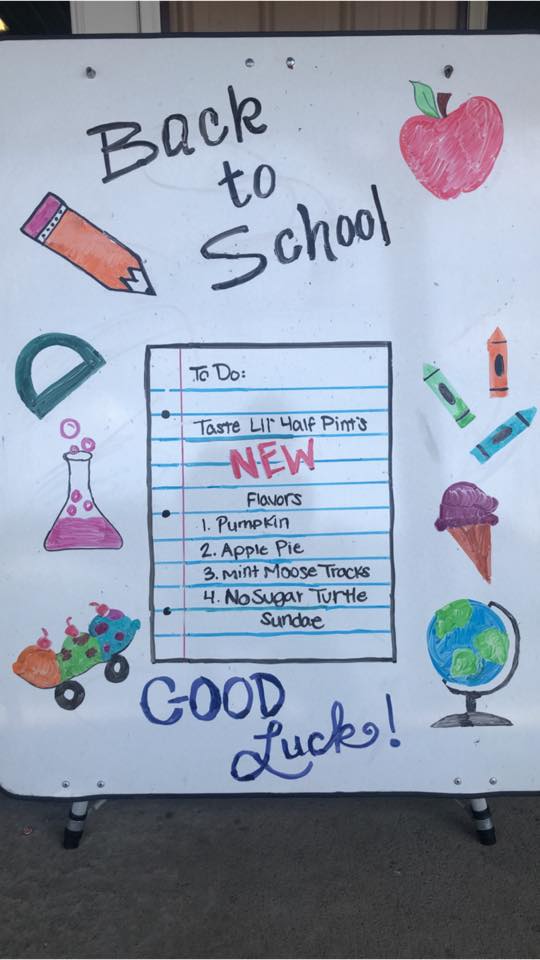 Back
to
School
To Do:
Taste Lil' Half Pint's
NEW
Flavors
1. Pumpkin
2. Apple Pie
3. Mint Moose Tracks
4. No Sugar Turtle
Sundae
GOOD
Luck!